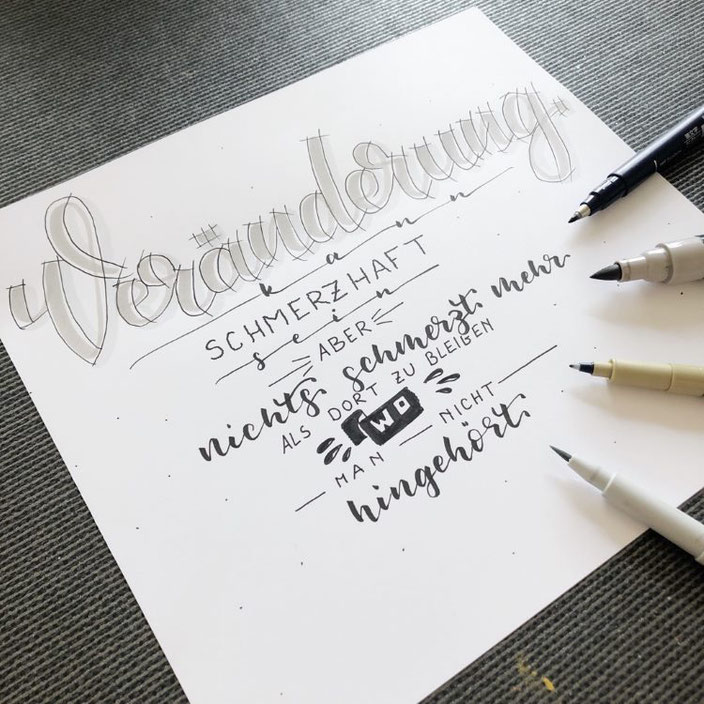 Veränderung
kann
SCHMERZHAFT
sein
ABER
nichts schmerzt mehr
ALS DORT ZU BLEIBEN
WO
MAN NICHT
hingehört